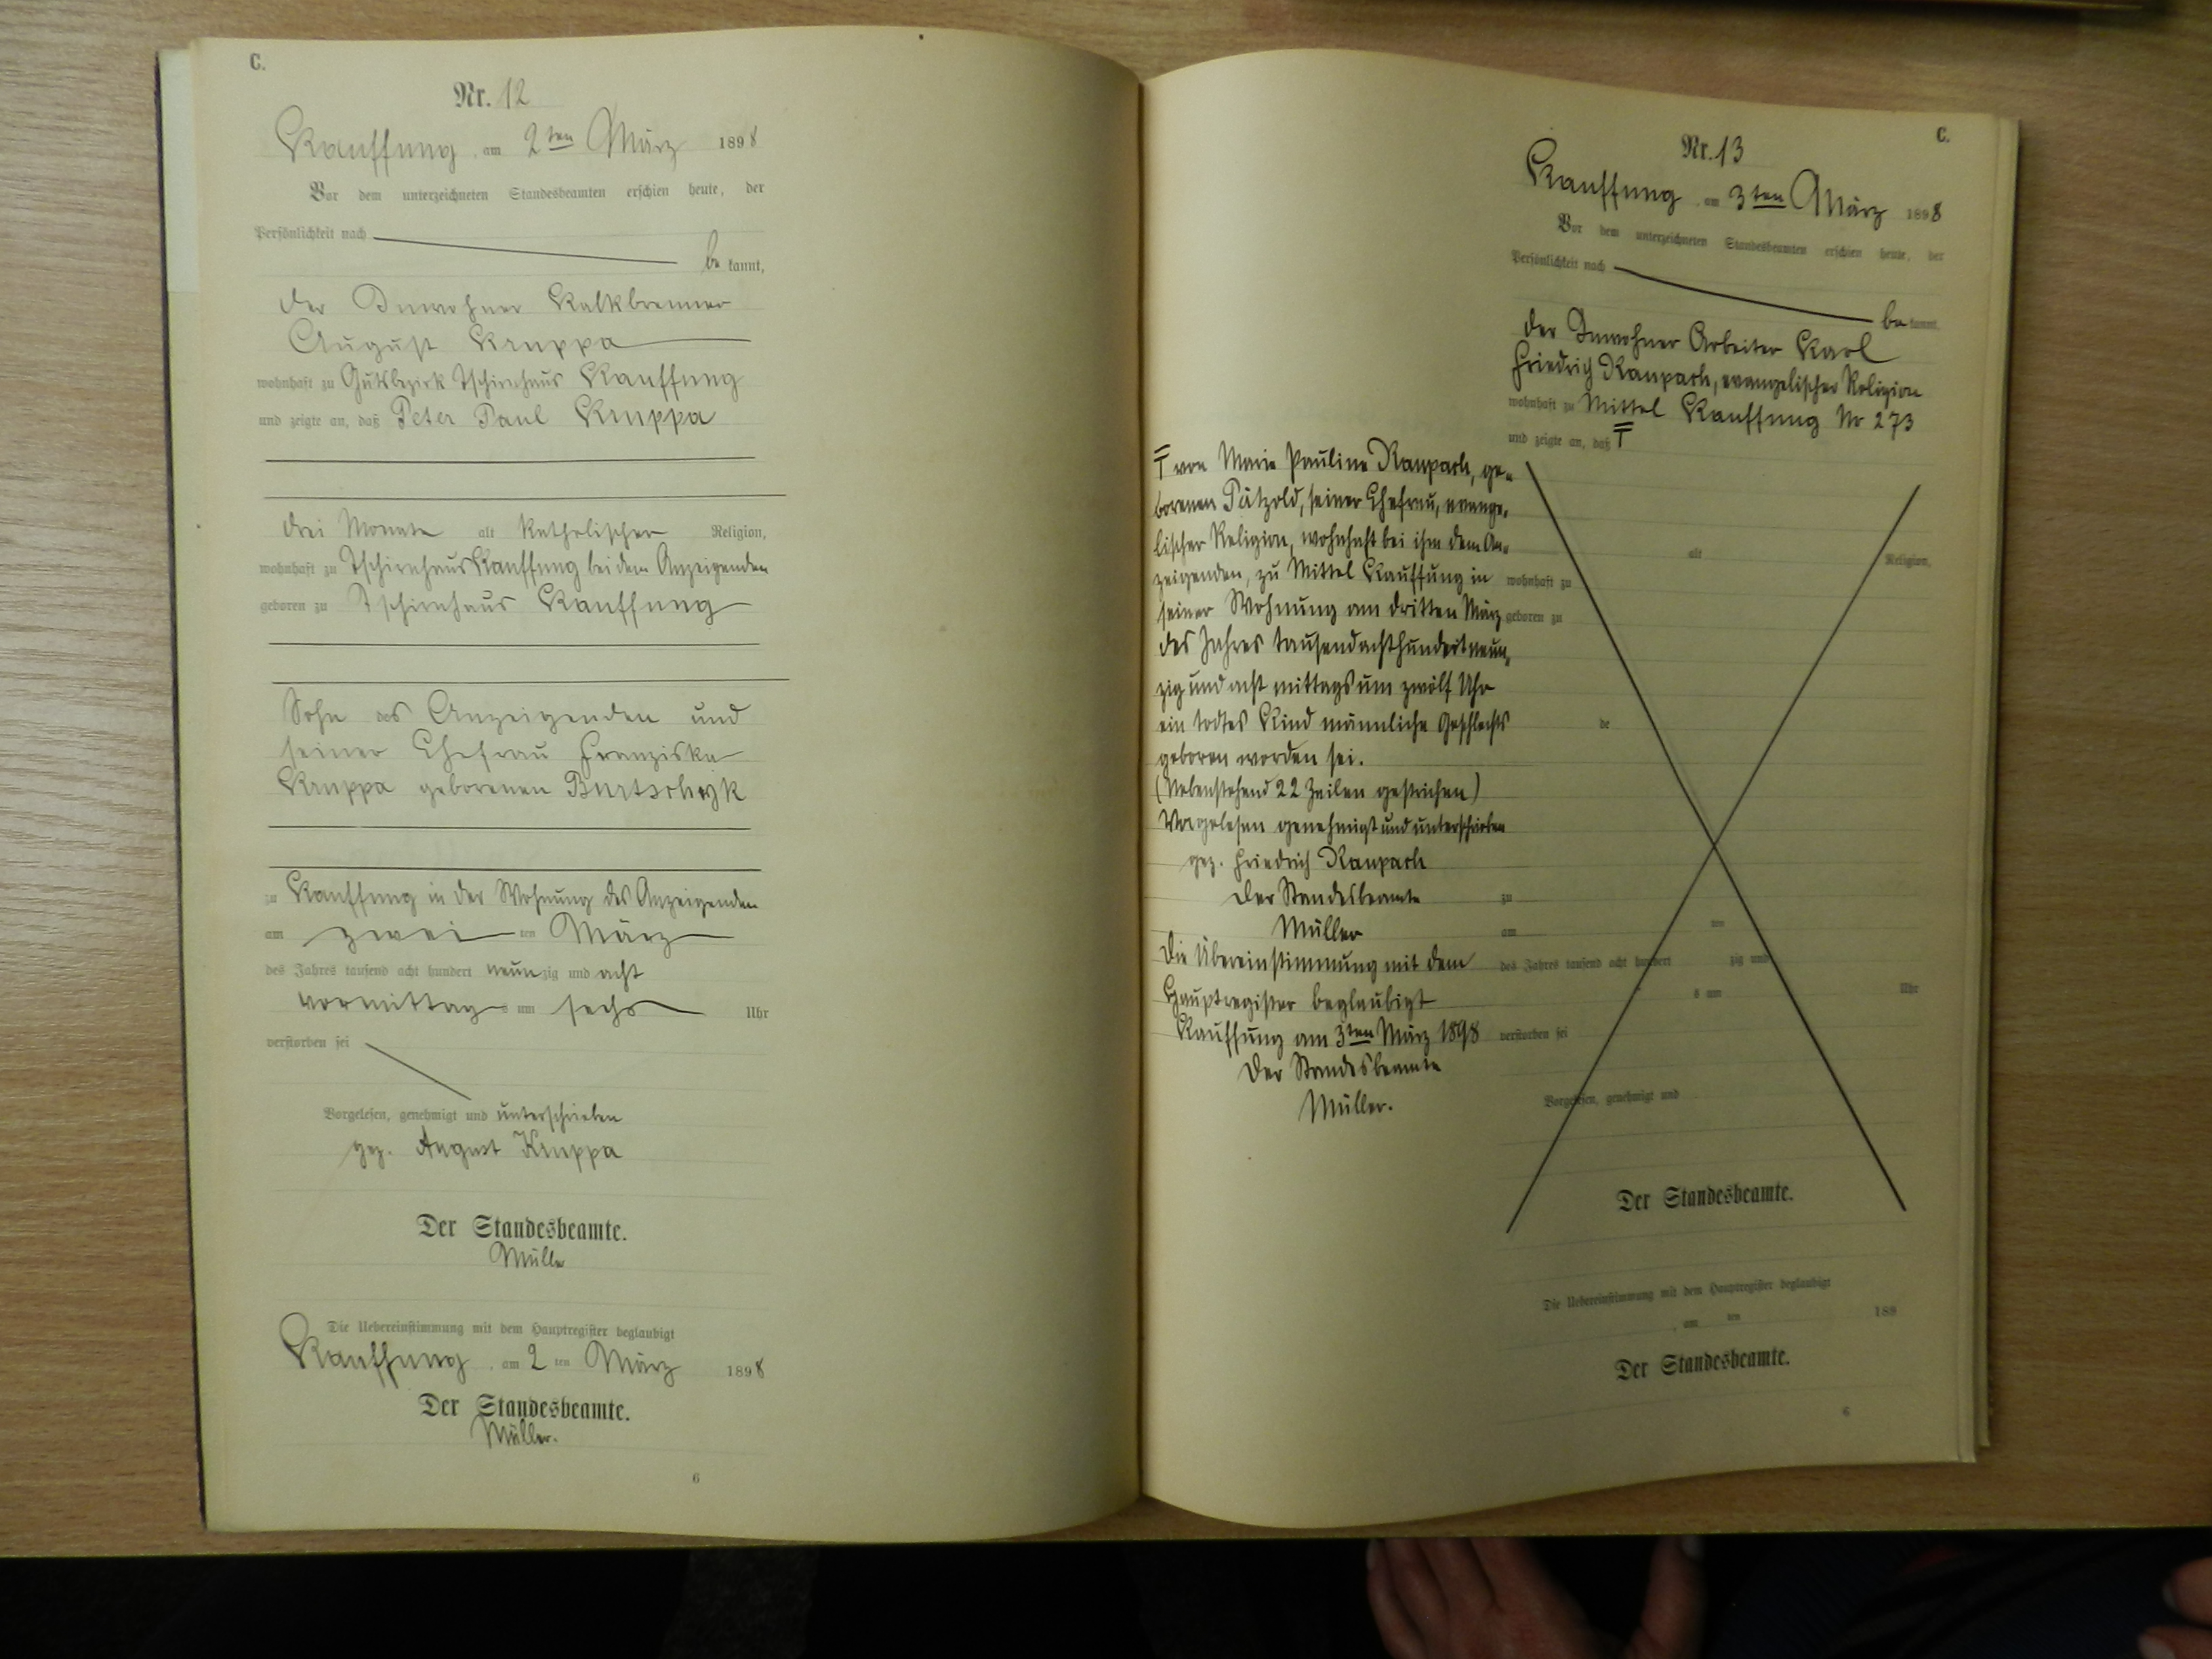 C.
Nr. 12
Kauffung, am 2ten März 1898
Vor dem unterzeichneten Standesbeamten erschien heute, der
Persönlichkeit nach
bekannt,
der Inwohner Kalkbrenner
August Kruppa
wohnhaft zu Gutsbezirk Tschirnhaus Kauffung
und zeigte an, daß Peter Paul Kruppa
drei Monate alt katholischer Religion,
wohnhaft zu Tschirnhaus Kauffung bei dem Anzeigenden
geboren zu Tschirnhaus Kauffung
Sohn des Anzeigenden und
seiner Ehefrau Franziska
Kruppa geborenen
zu Kauffung in der Wohnung des Anzeigenden
am zwei ten März
des Jahres tausend acht hundert neunzig und acht
vormittags um sechs Uhr
verstorben sei
Vorgelesen, genehmigt und unterschrieben
gez. August Kruppa
Der Standesbeamte.
Müller
Die Uebereinstimmung mit dem Hauptregister beglaubigt
Kauffung, am 2 ten März 1898
Der Standesbeamte.
Müller.
6
C.
Nr. 13
Kauffung, am 3ten März 1898
Vor dem unterzeichneten Standesbeamten erschien heute, der
Persönlichkeit nach
bekannt,
der Inwohner Arbeiter Karl
Friedrich Raupach, evangelischer Religion
wohnhaft zu Mittel Kauffung Nr 273
und zeigte an, daß
von Marie Pauline Raupach, ge-
borenen Pätzold, seiner Ehefrau, evange-
lischer Religion, wohnhaft bei ihm dem An-
zeigenden, zu Mittel Kauffung in
seiner Wohnung am dritten März
des Jahres tausendachthundertneun-
zig und acht mittags um zwölf Uhr
ein todtes Kind männliche Geschlechts
geboren worden sei.
(Nebenstehend 22 Zeilen gestrichen)
Vorgelesen genehmigt und unterschrieben
gez. Friedrich Raupach
Der Standesbeamte
Müller
Die Übereinstimmung mit dem
Hauptregister beglaubigt
Kauffung am 3ten März 1898
Der Standesbeamte
Müller.
alt Religion,
wohnhaft zu
geboren zu
de
zu
am ten
des Jahres tausend acht hundert zig und
s um Uhr
verstorben sei
Vorgelesen, genehmigt und
Der Standesbeamte.
Die Uebereinstimmung mit dem Hauptregister beglaubigt
, am ten 189
Der Standesbeamte.
6